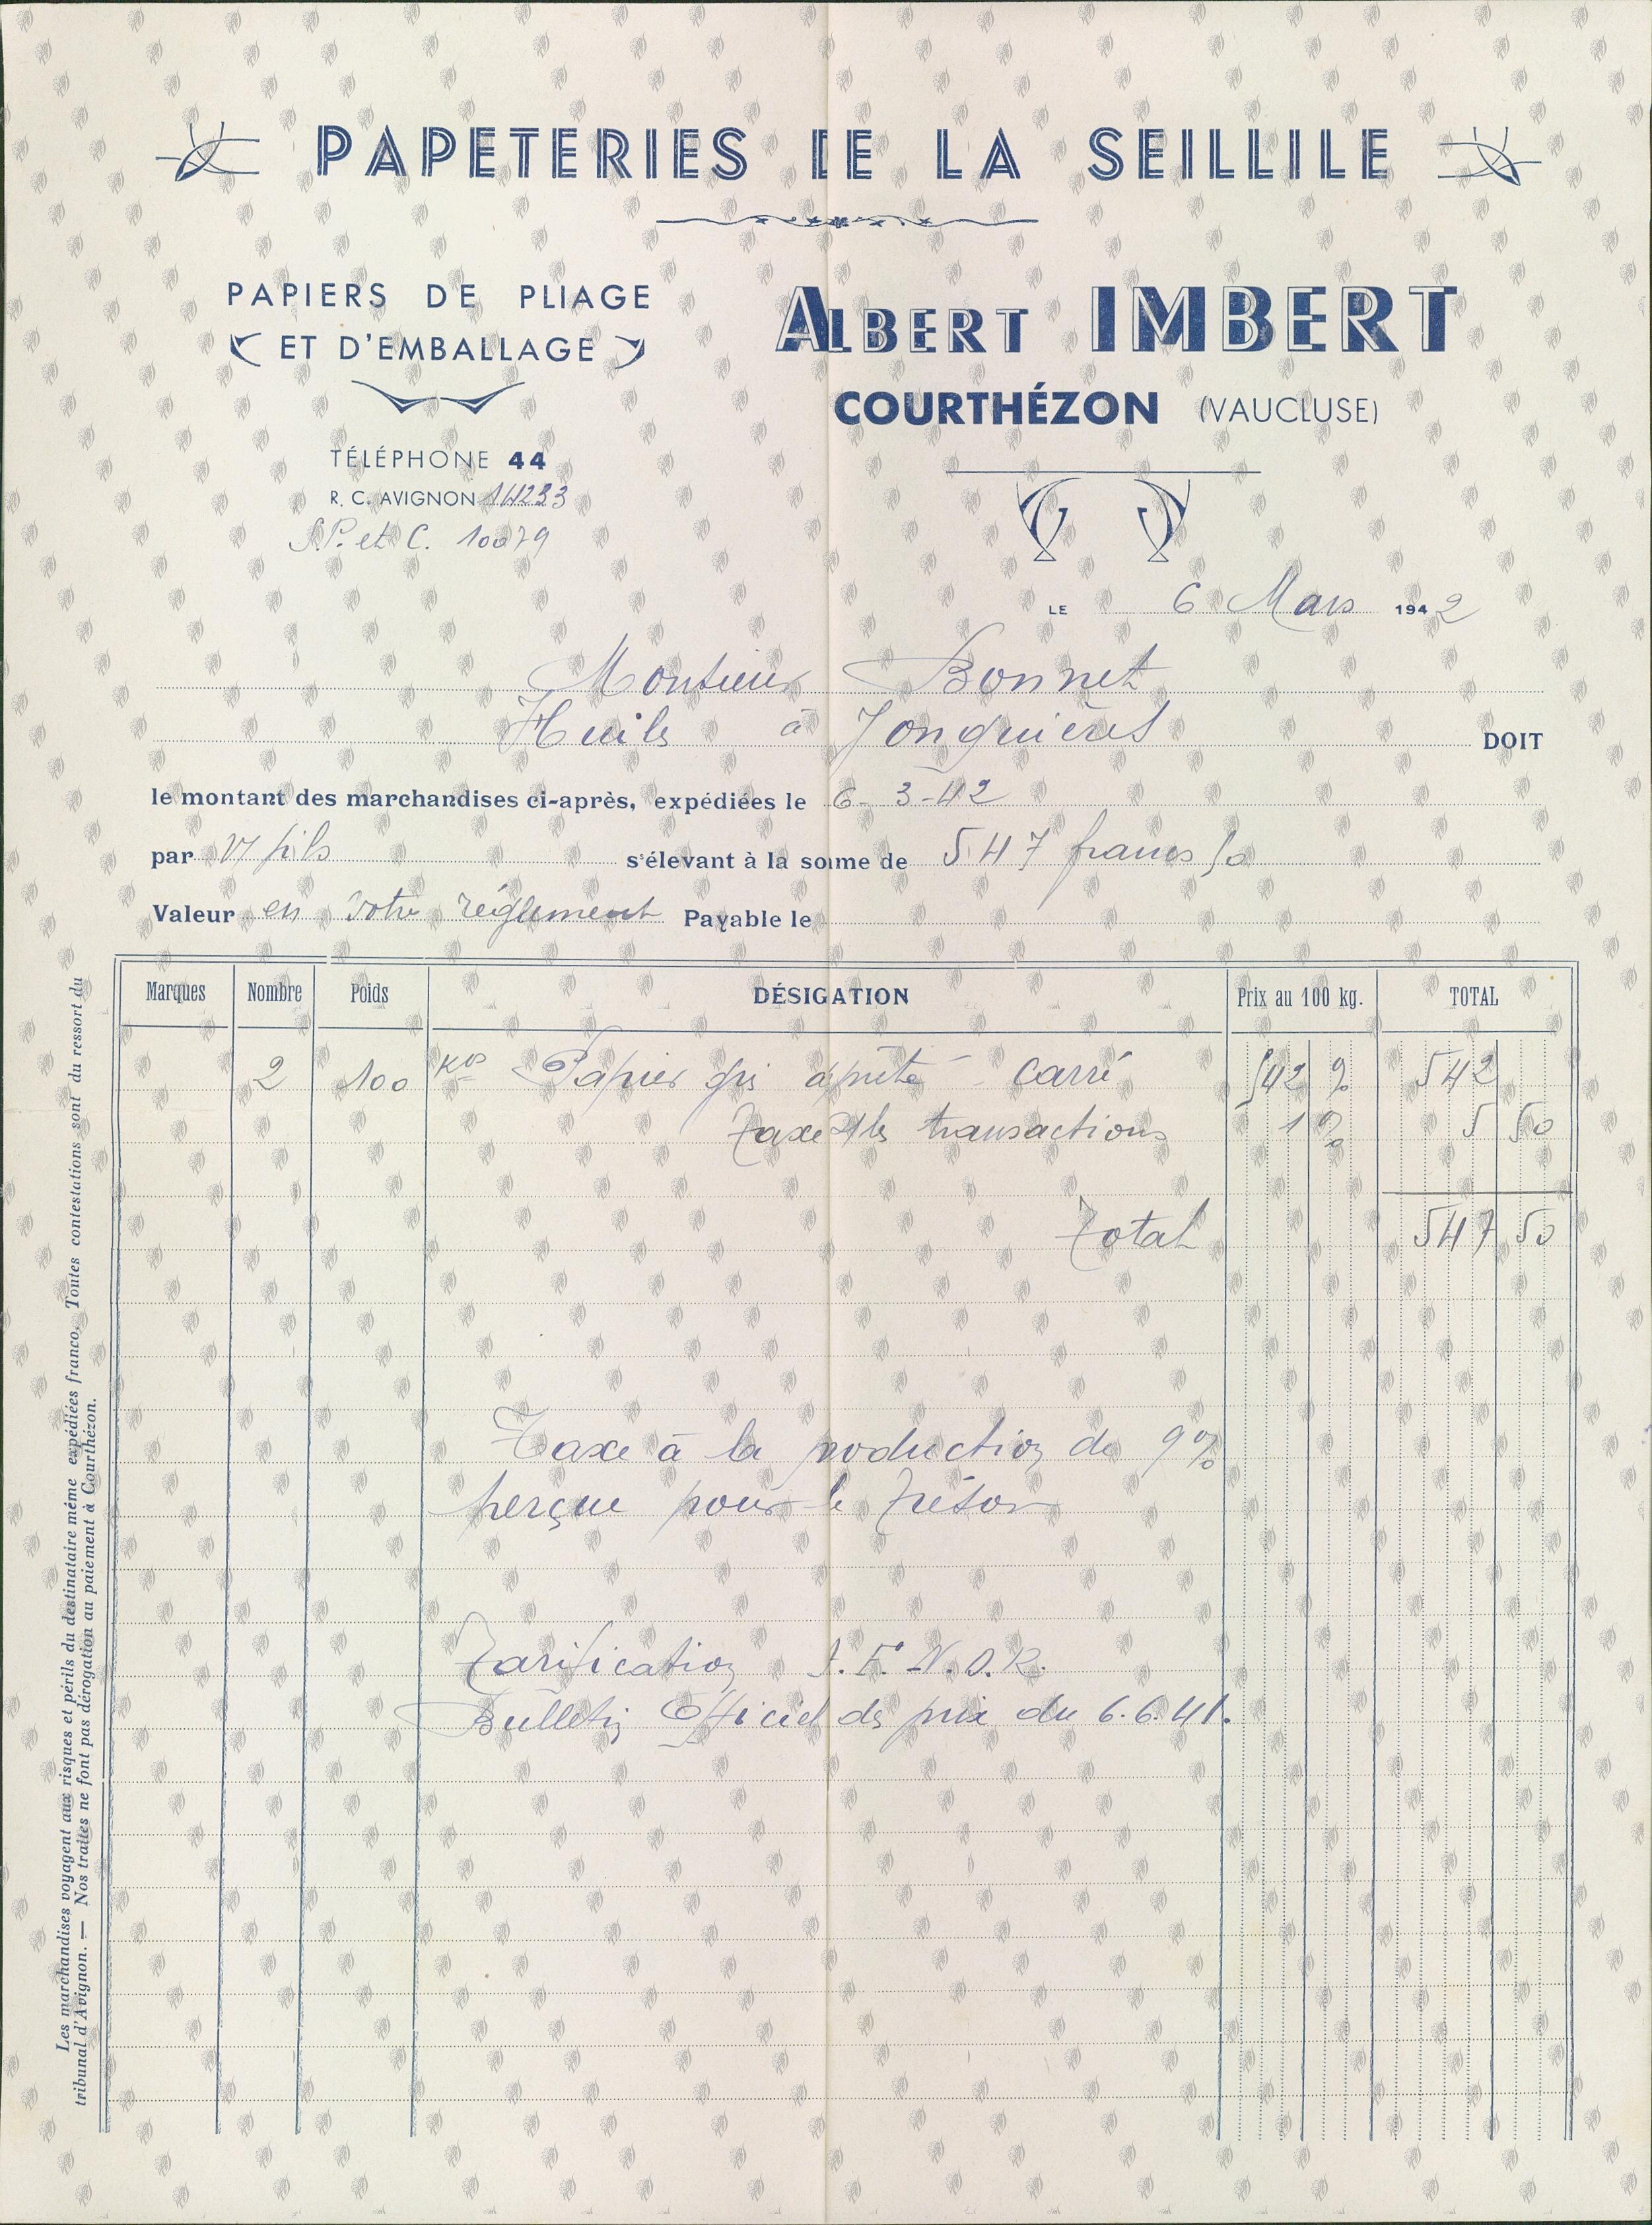 PAPETERIES DE LA SEILLILE
PAPIERS DE PLIAGE
ET D'EMBALLAGE
ALBERT IMBERT
COURTHÉZON (VAUCLUSE)
TÉLÉPHONE 44
R. C. AVIGNON 14233
S.P. et C. 10079
LE 6 Mars 1942
Monsieur Bonnet
Huiles à Jonquières DOIT
le montant des marchandises ci-après, expédiées le 6-3-42
par V/ fils s'élevant à la somme de 547 francs 50
Valeur en votre réglement Payable le
Marques Nombre Poids DÉSIGATION Prix au 100 kg. TOTAL
2 100 Kos Papier gris apprêté carré 542 % 542
Taxe s/ les transactions 1 % 5 50
Total 547 50
Taxe à la production de 9 %
perçue pour le Trésor
Tarification I.F.N.O.R.
Bulletin Officiel des prix du 6.6.41.
Les marchandises voyagent aux risques et périls du destinataire même expédiées franco. Toutes contestations sont du ressort du
tribunal d'Avignon. — Nos traites ne font pas dérogation au paiement à Courthézon.